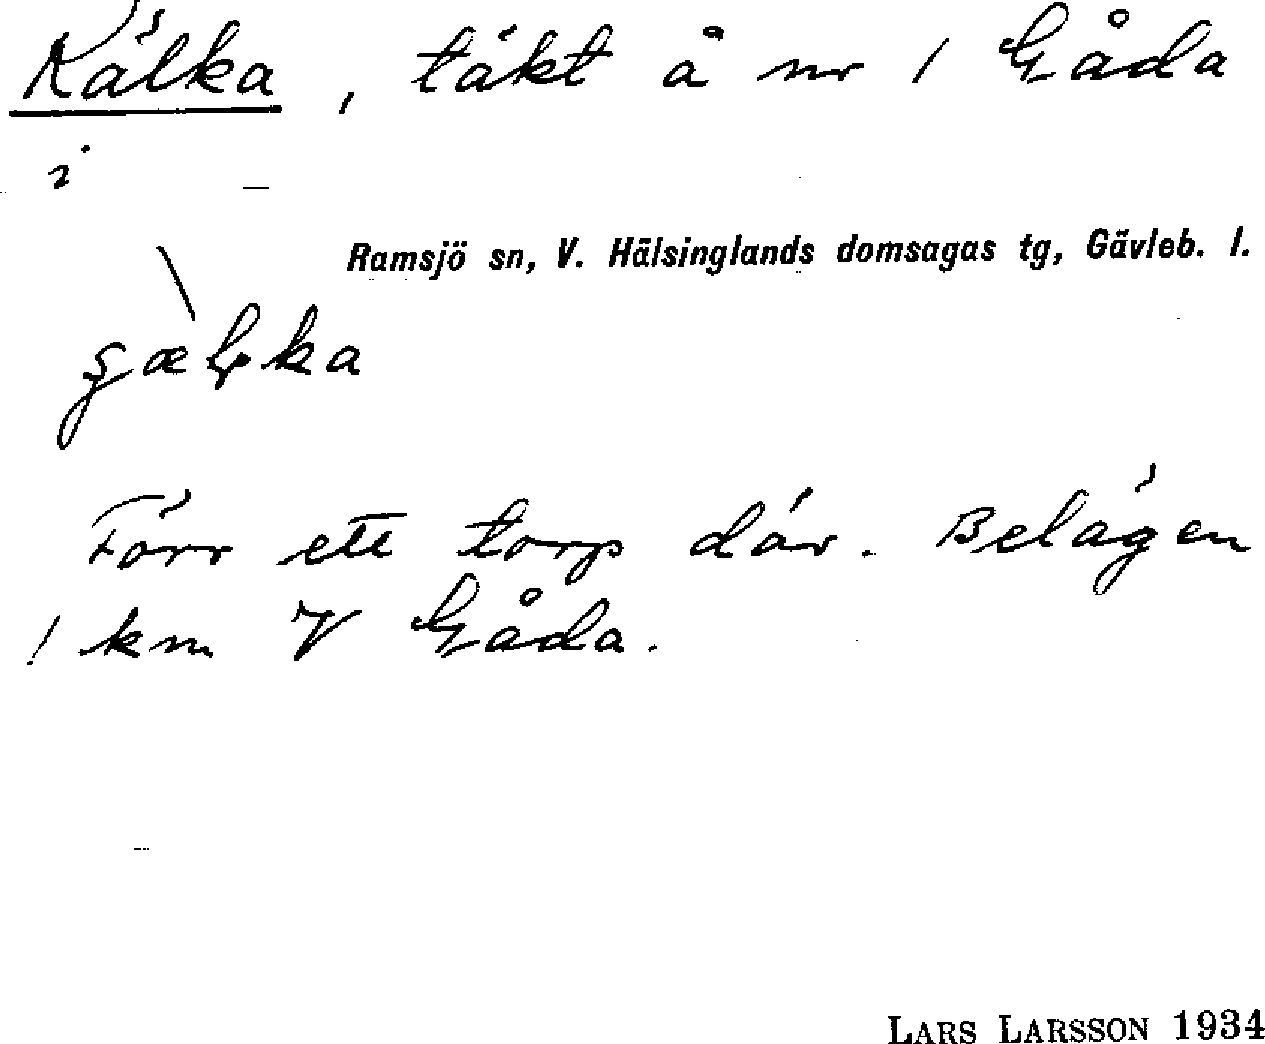 Kälka, täkt å nr 1 Gåda
i
Ramsjö sn, V. Hälsinglands domsagas tg, Gävleb. l.
Förr ett torp där. Belägen
1 km V Gåda.
LARS LARSSON 1934